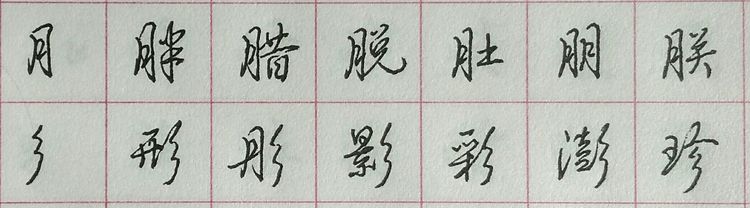 月 胖 腊 脱 肚 朋 朕
彡 形 彤 影 彩 澎 珍